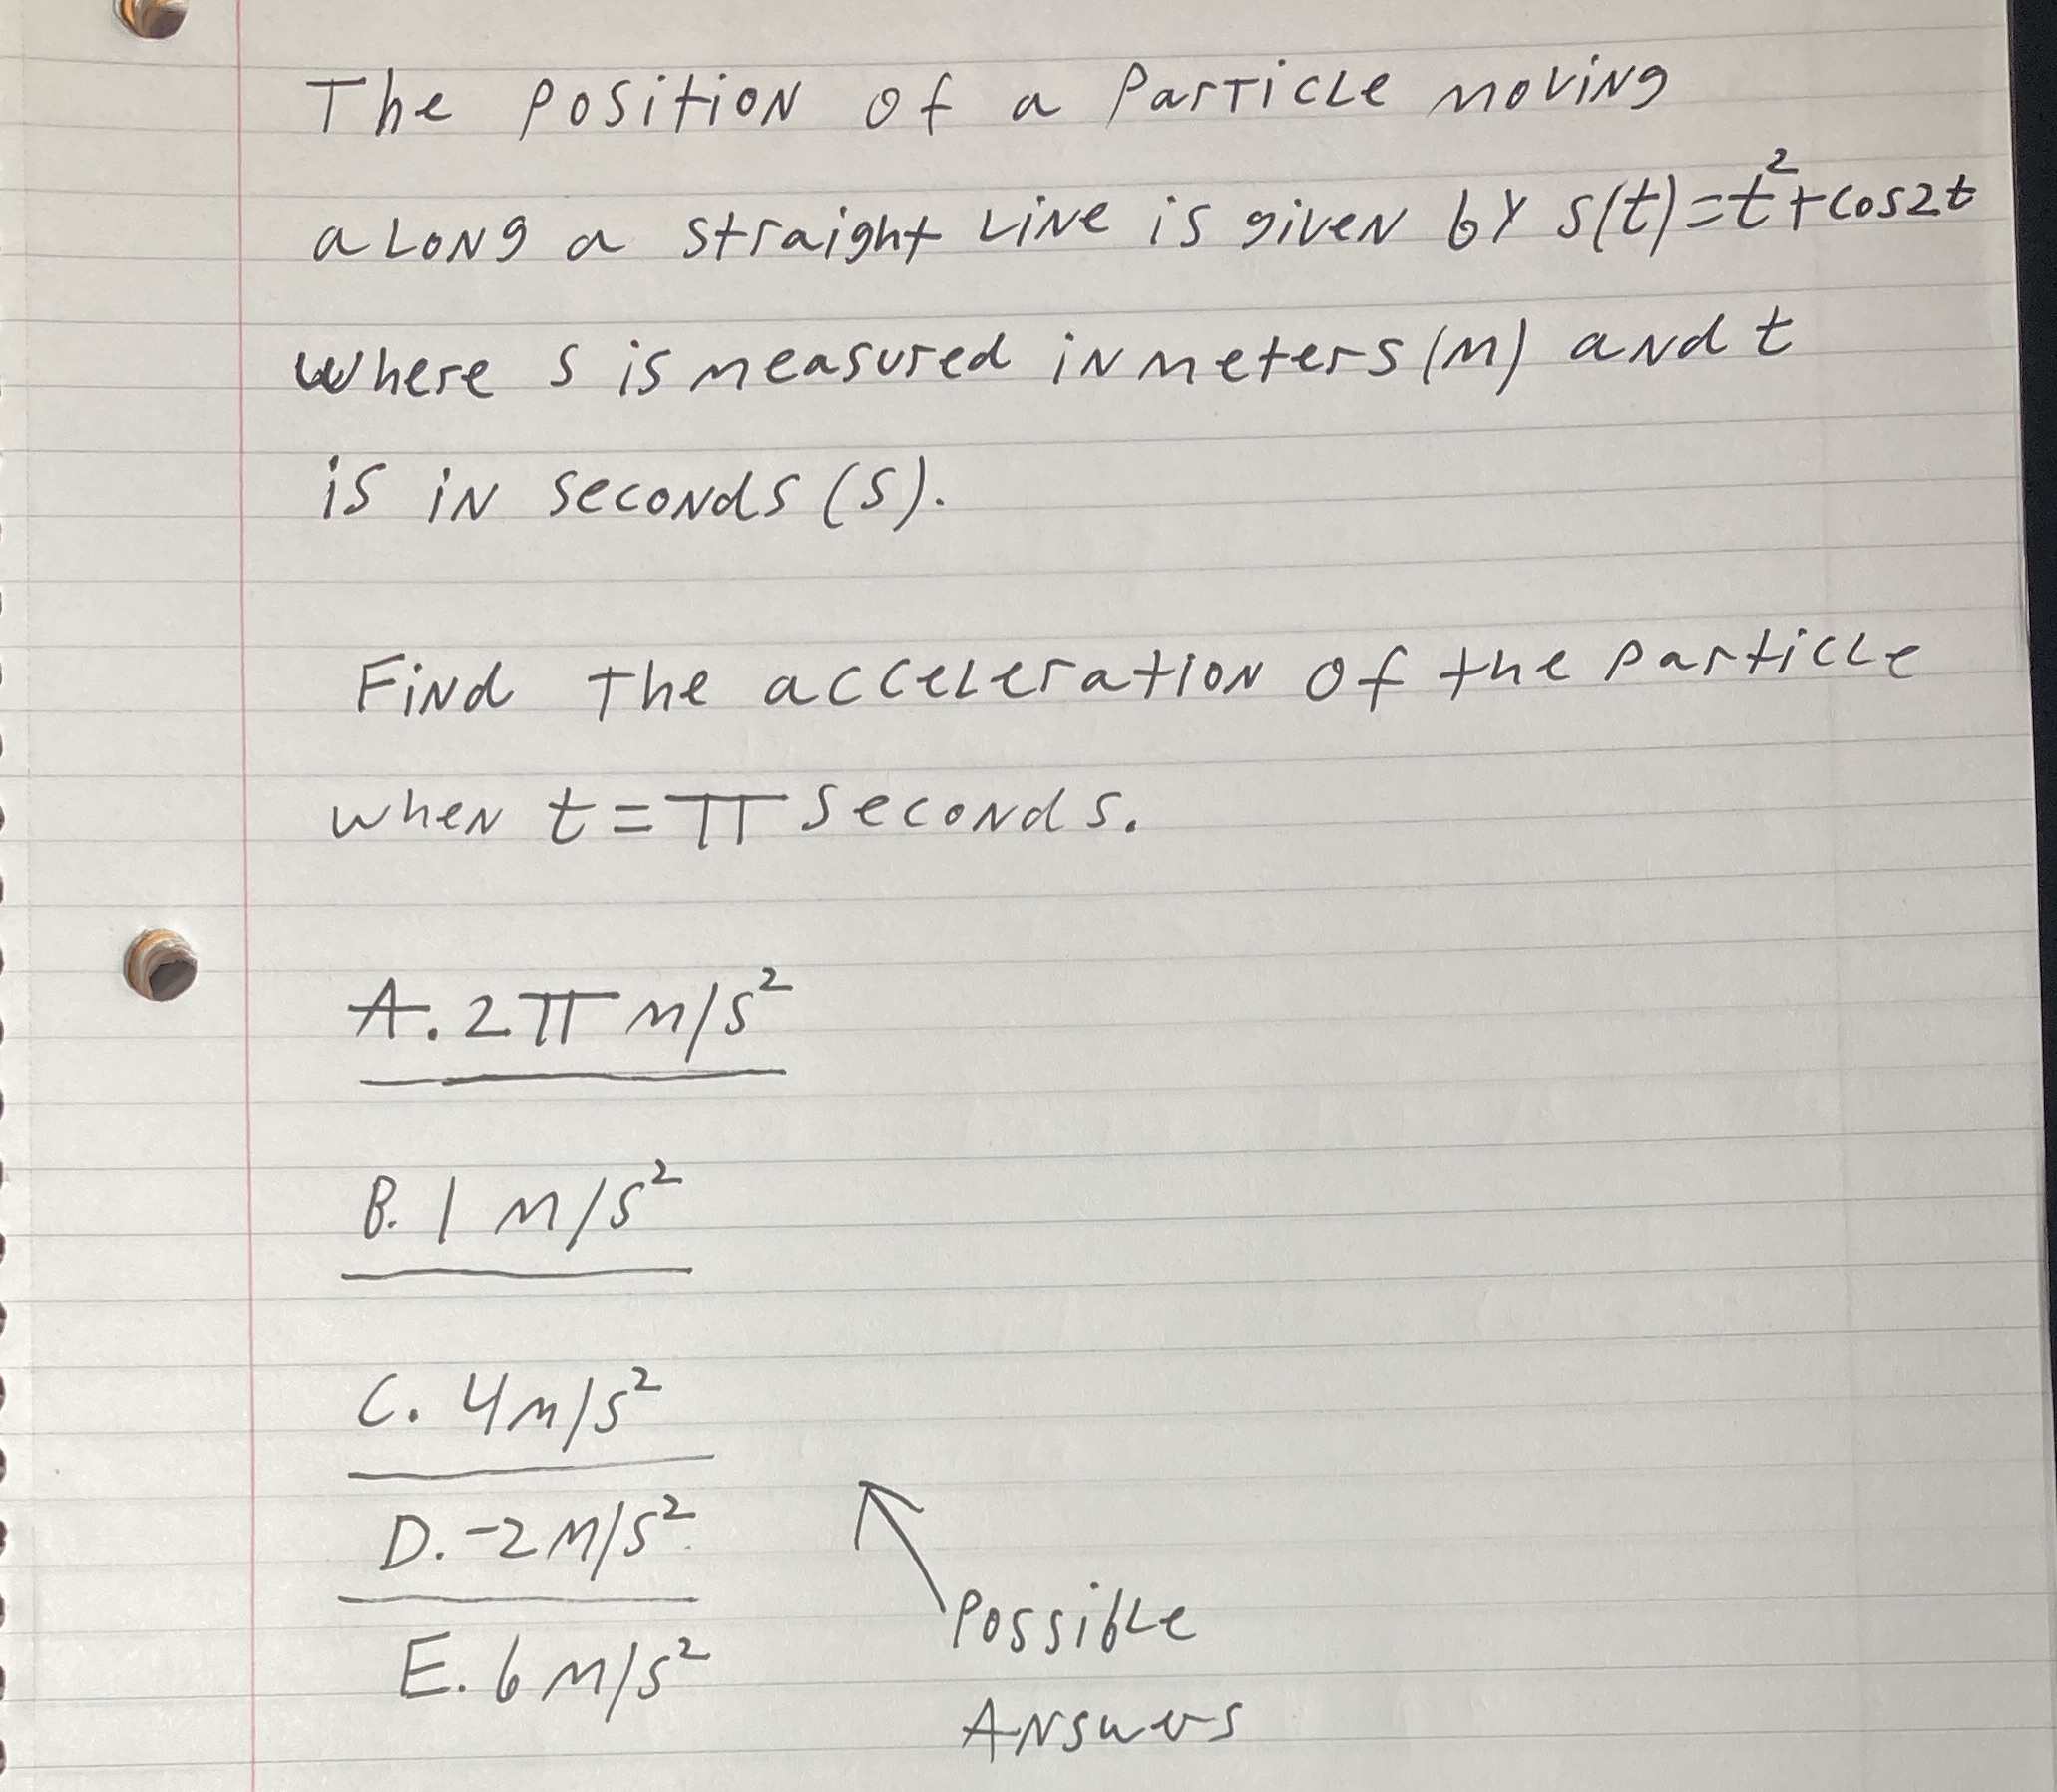 The position of a particle moving
along a straight line is given by s(t)=t²+cos2t
where s is measured in meters (m) and t
is in seconds (s).
Find the acceleration of the particle
when t=π seconds.
A. 2π m/s²
B. 1 m/s²
C. 4m/s²
D. -2 m/s²
E. 6 m/s²
Possible
Answers